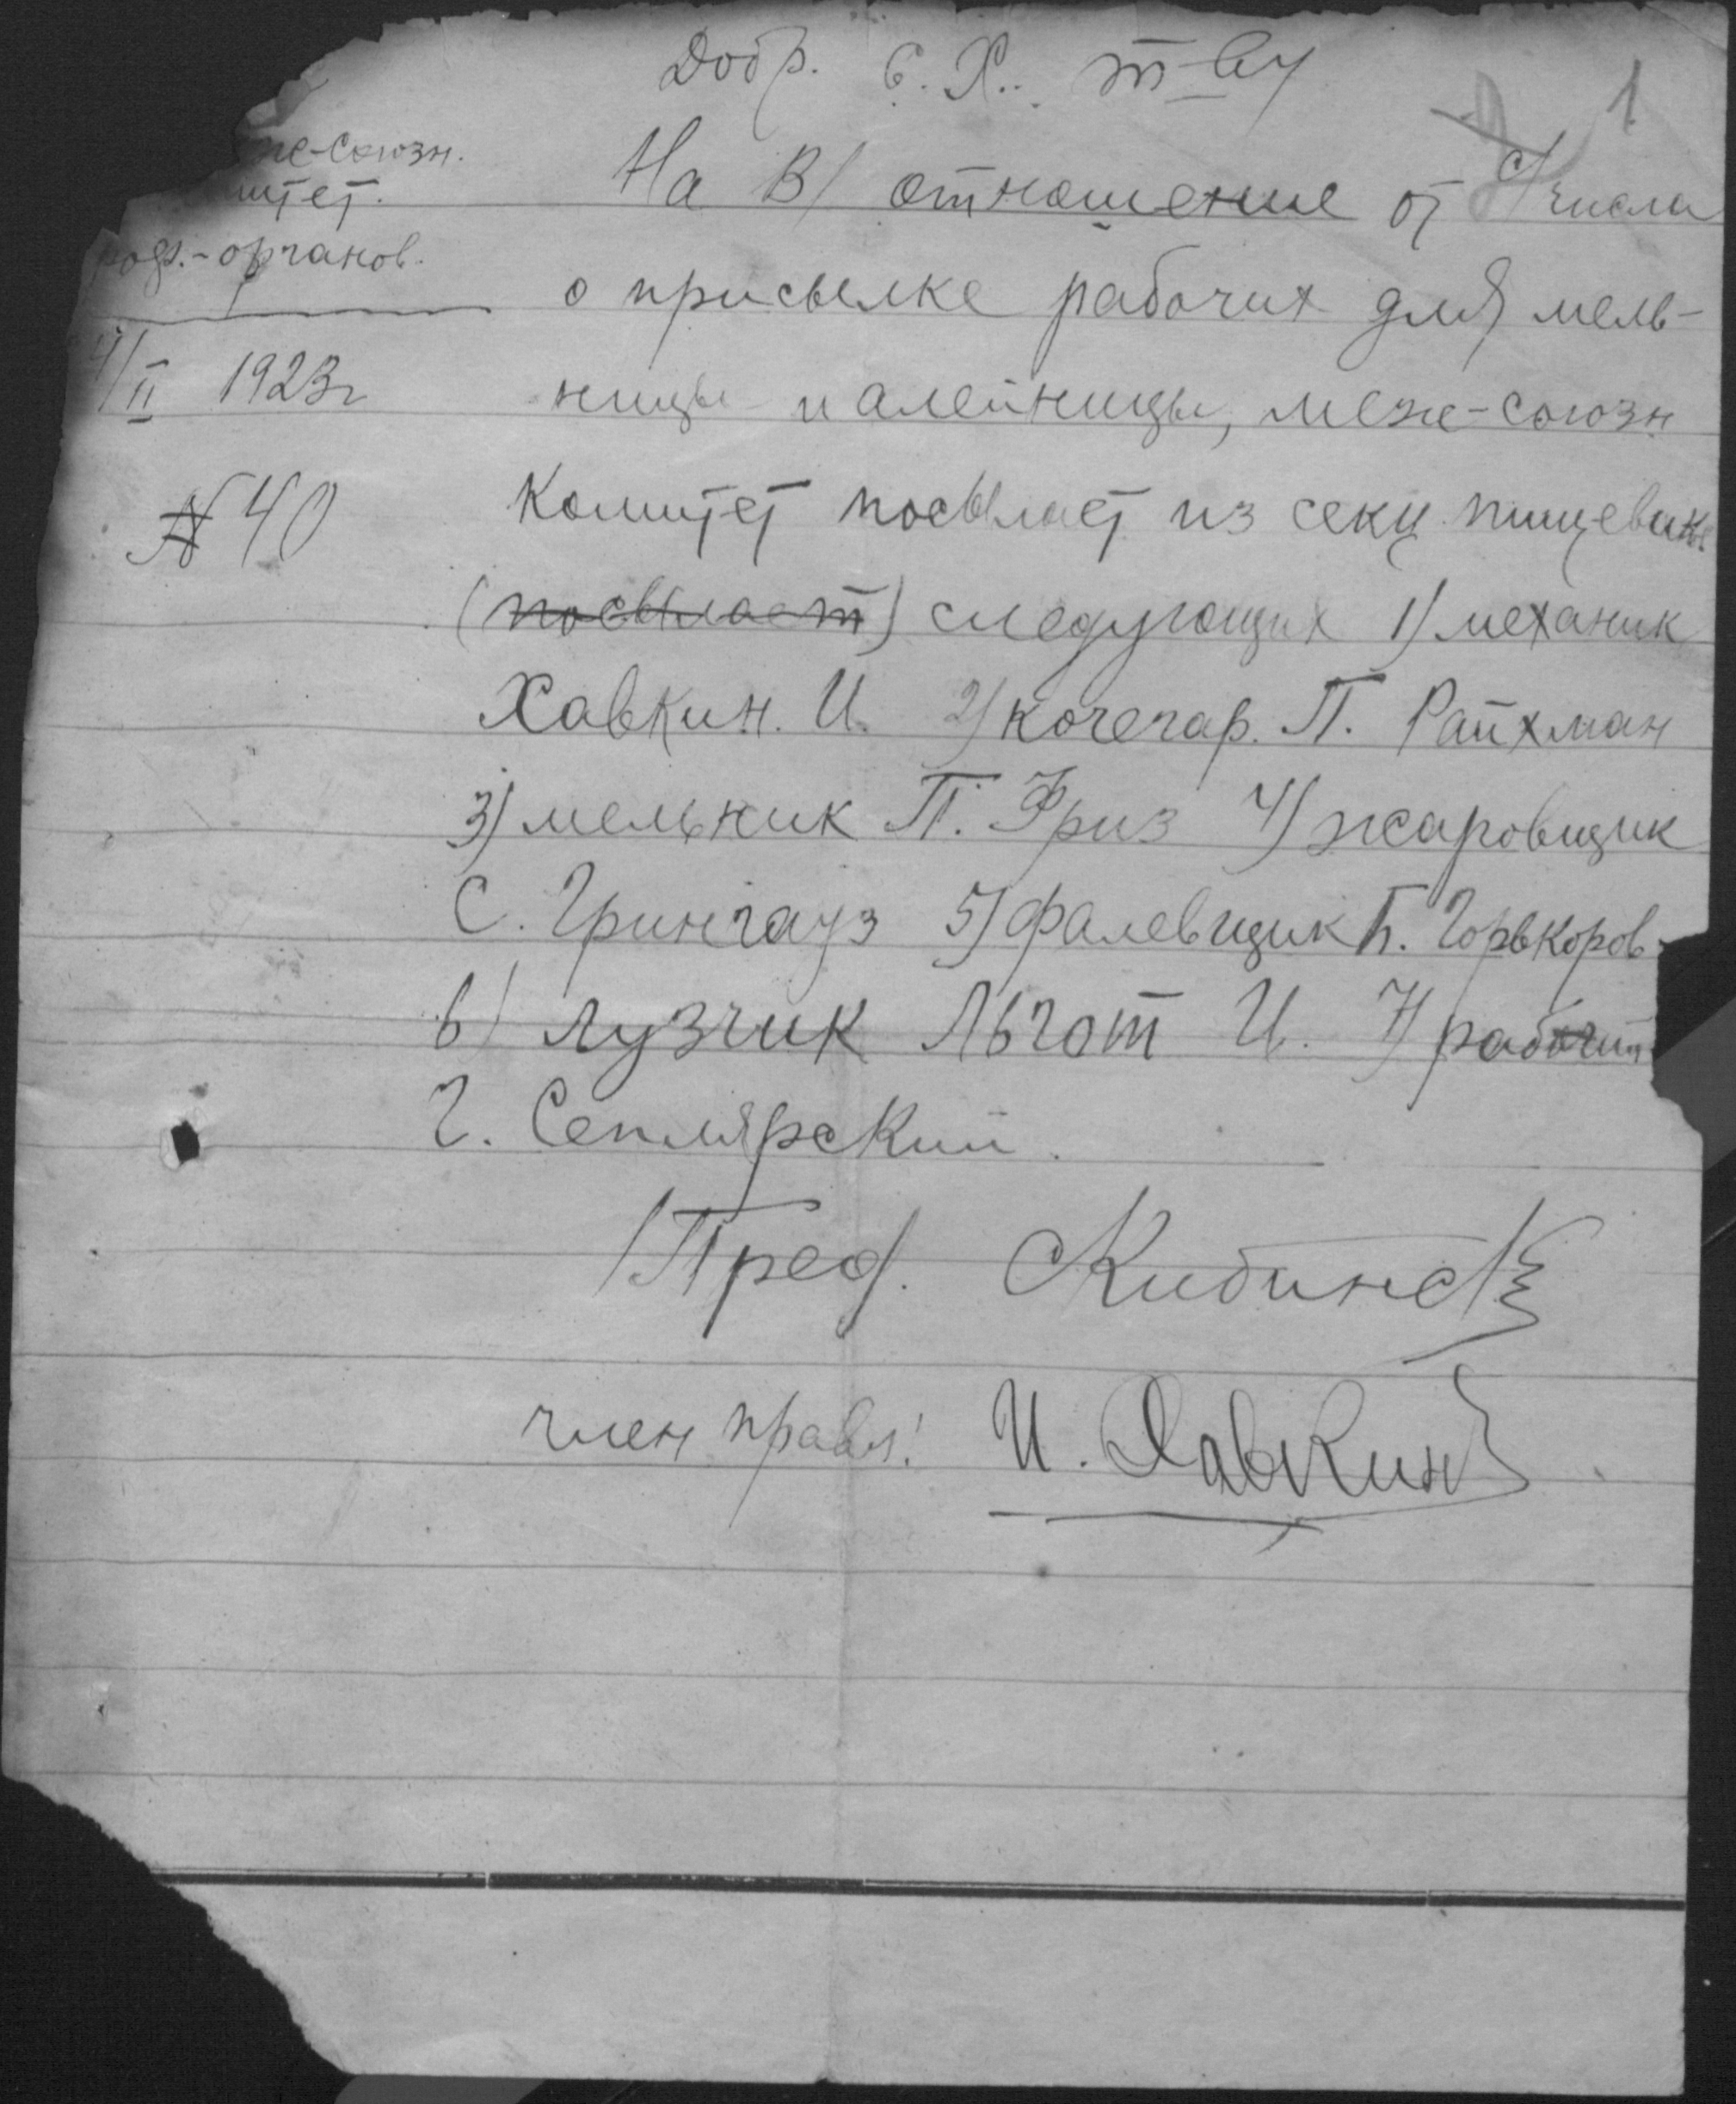 Добр. С. Х. т-ву
1
же-союзн.
митет.
роф.-органов.
4/II 1923г
№ 40
На В/ отношение от с/числа
о присылке рабочих для мель-
ницы и алейницы, меж-союзн
комитет посылает из секц пищевиков
(посылает) следующих 1) механик
Хавкин. И. 2) кочегар. П. Райхман
3) мельник П. Фриз 4) жаровщик
С. Грингауз 5) фалевщик Б. Горькоров
6) лузчик Львот И. 7) рабочий
Г. Сеплярский.
Пред. Кибинск
член правл: И. Хавкин